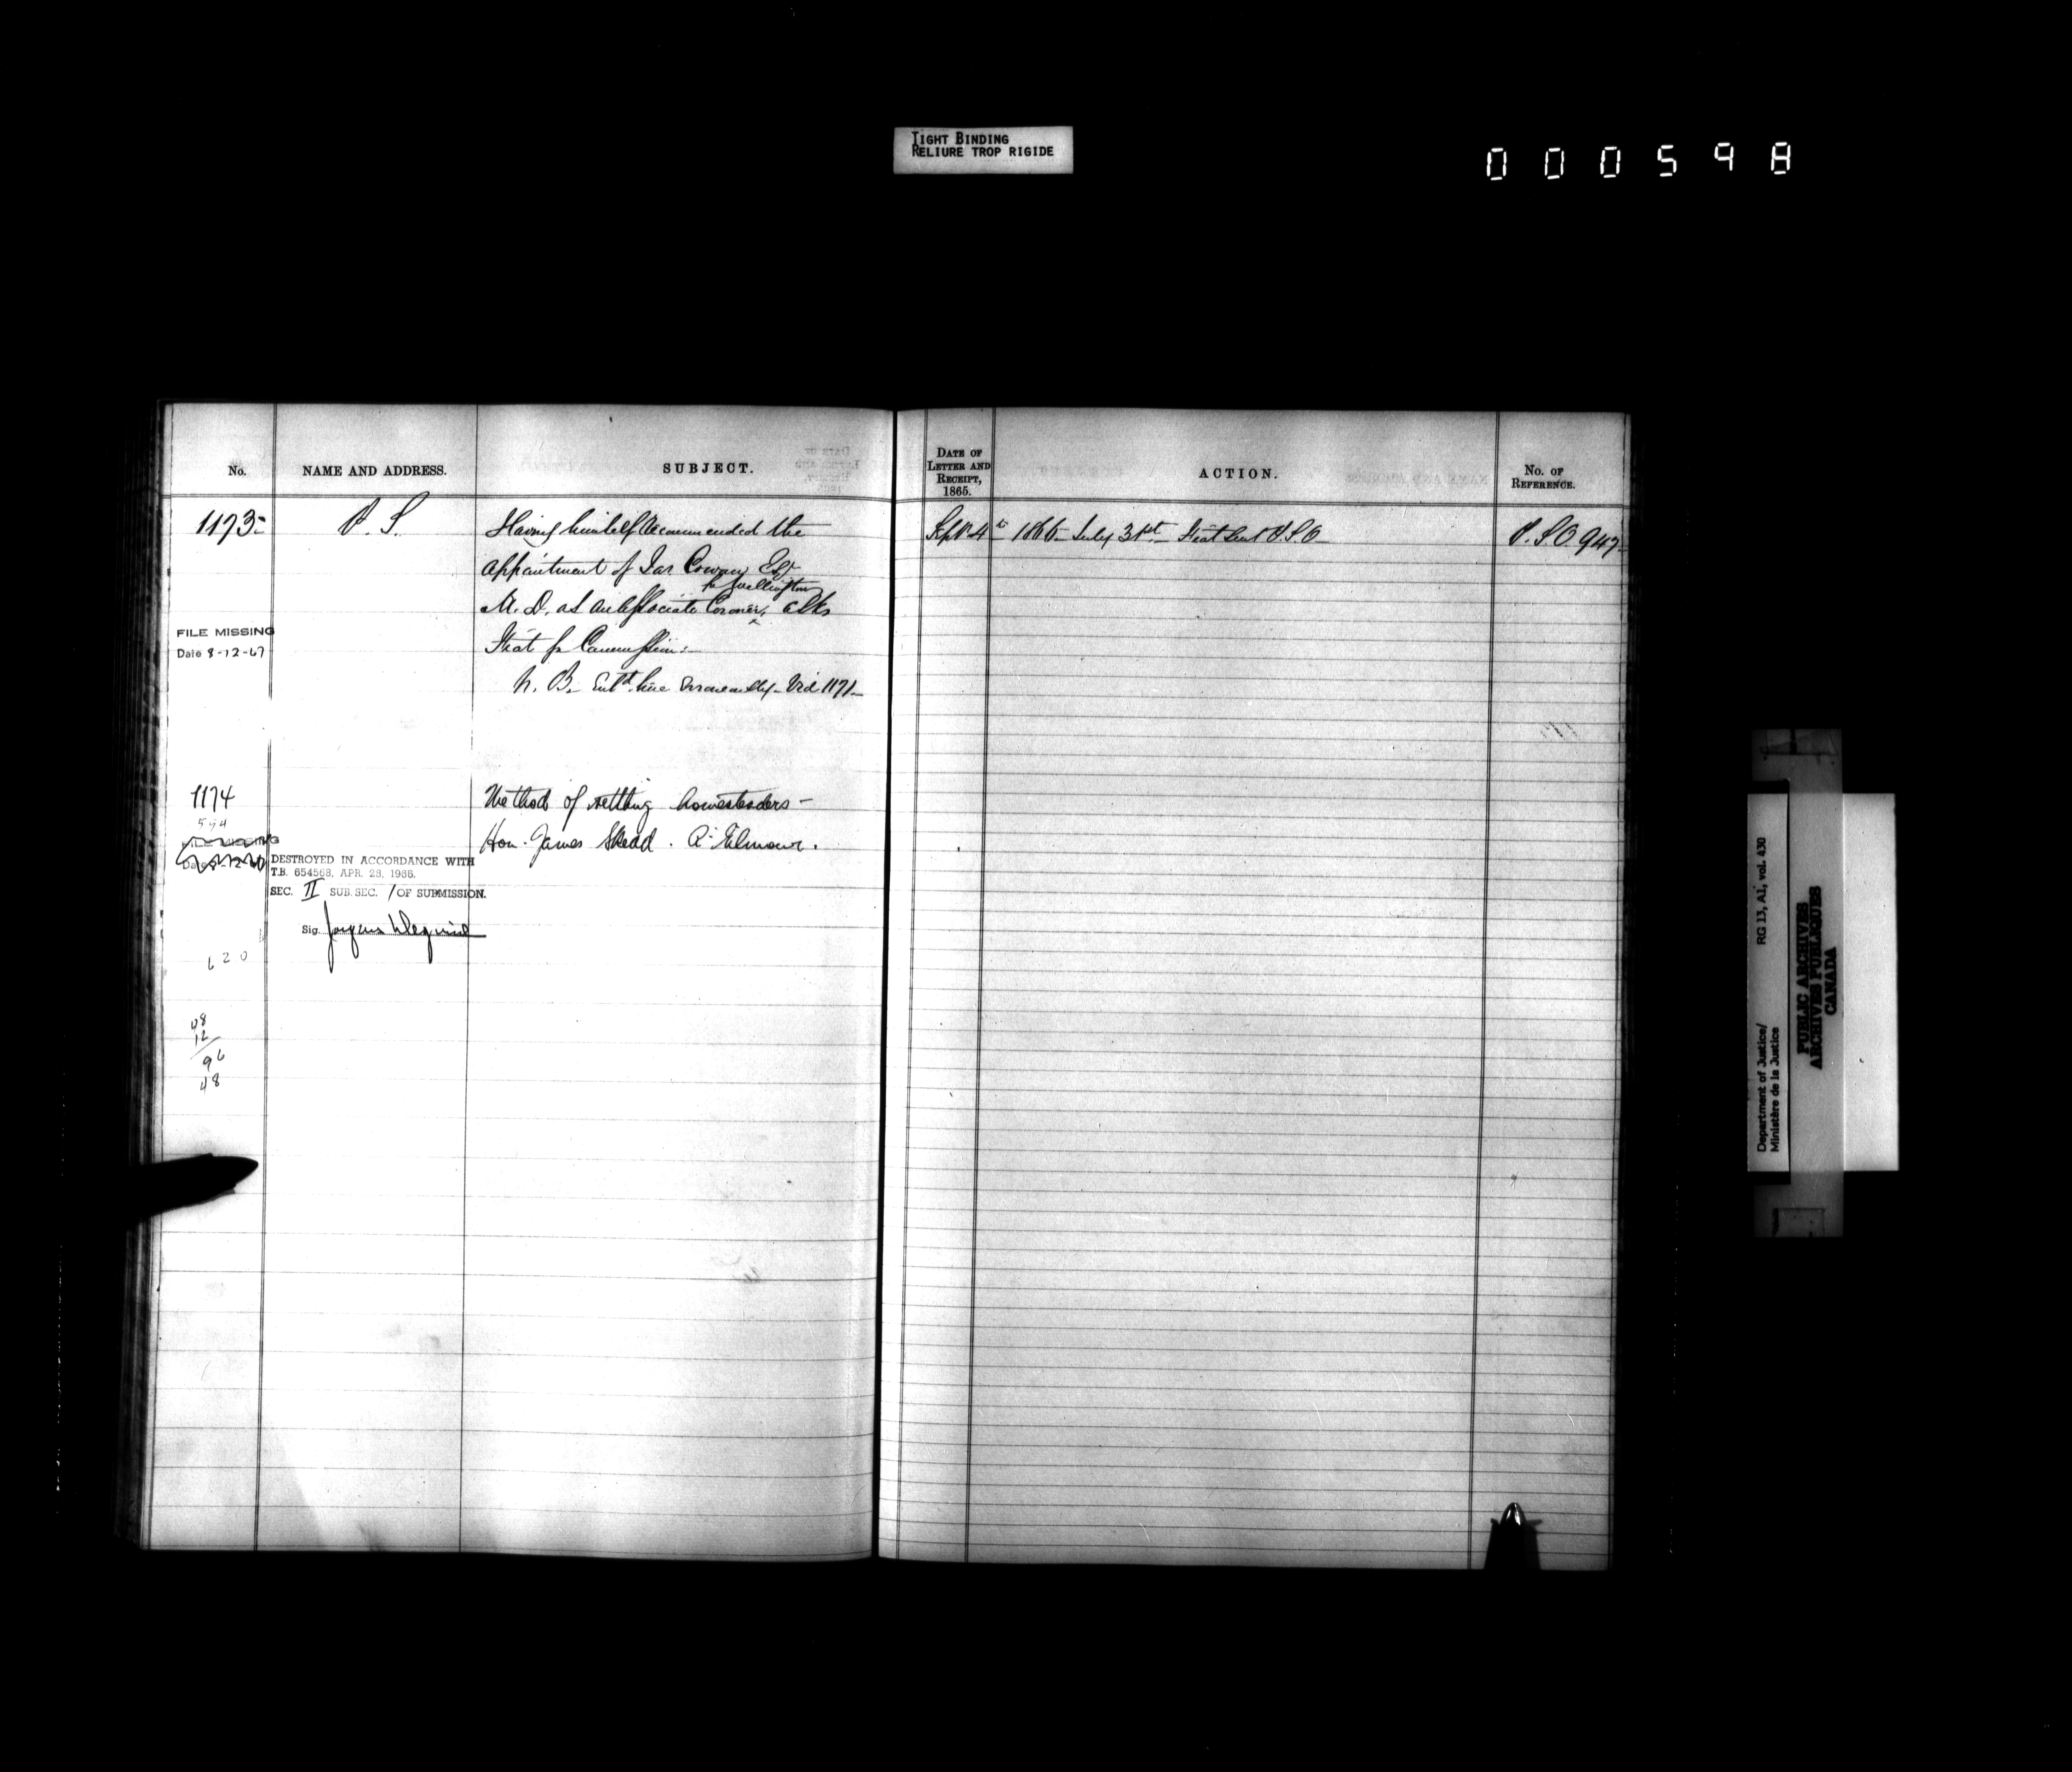 TIGHT BINDING
RELIURE TROP RIGIDE
000598
No.
NAME AND ADDRESS.
SUBJECT.
1173
P. S.
Having himself recommended the
appointment of Jas Cowan Esqr
for Wellington
M. D. as an Associate Coroner, asks
fiat for Commission:
N. B. Entd. here erroneously - Vid 1171
FILE MISSING
Date 8-12-67
1174
594
Method of settling homesteaders -
Hon. James Skead. A. Gilmour.
FILE MISSING
DESTROYED IN ACCORDANCE WITH
T.B. 654568, APR. 28, 1966.
SEC. II SUB. SEC. 1 OF SUBMISSION.
Sig.
620
48
12
96
48
DATE OF
LETTER AND
RECEIPT,
1865.
ACTION.
No. OF
REFERENCE.
Sept 4th 1866 July 31st Fiat sent P.S.O
P.S.O. 947
Department of Justice/
Ministère de la Justice
RG 13, A1, vol. 430
PUBLIC ARCHIVES
ARCHIVES PUBLIQUES
CANADA